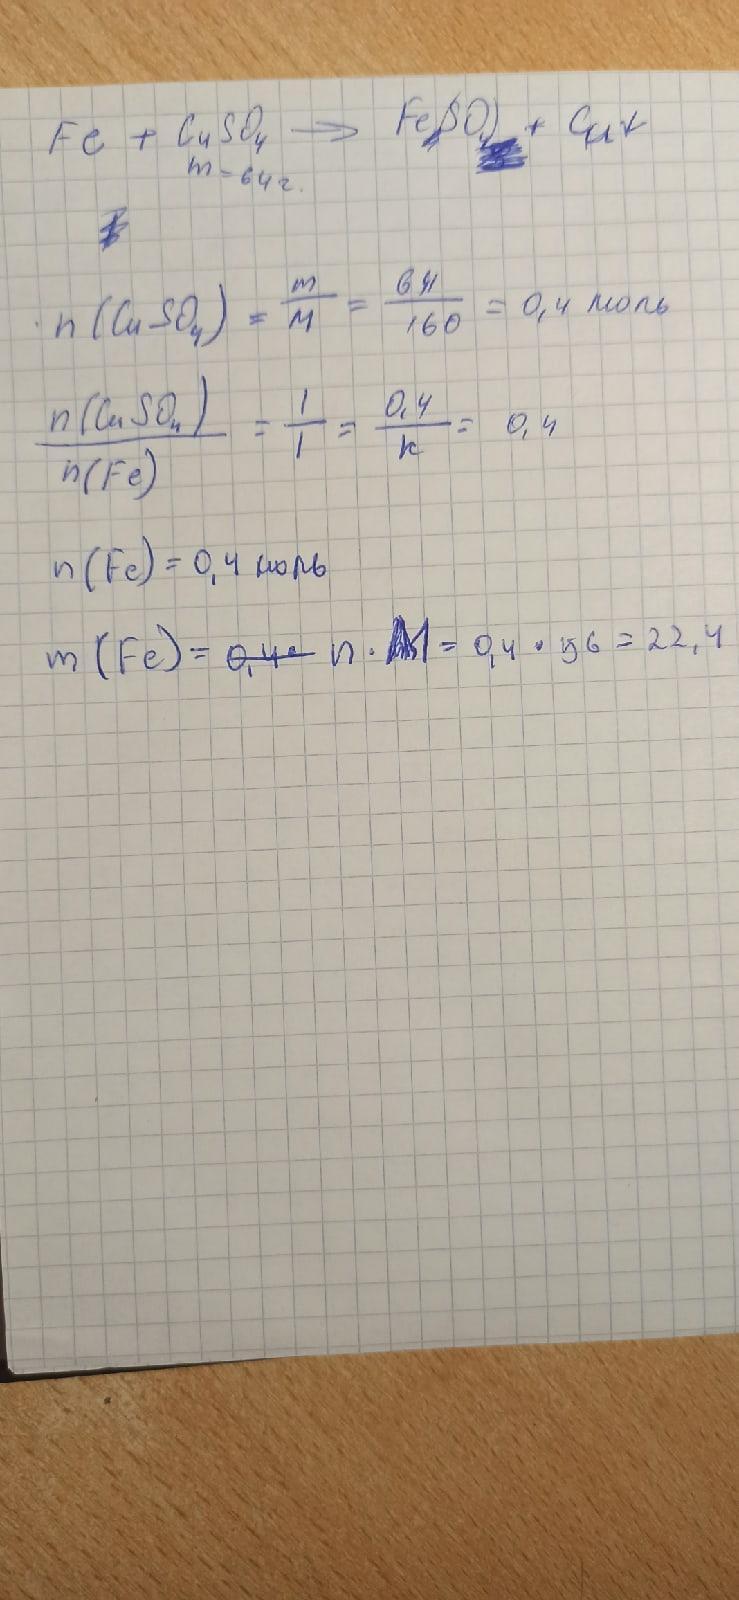 Fe + CuSO4 → Fe(SO4) + Cu↓
m = 64 г.
n(CuSO4) = m/M = 64/160 = 0,4 моль
n(CuSO4)/n(Fe) = 1/1 = 0,4/x = 0,4
n(Fe) = 0,4 моль
m(Fe) = 0,4· n · M = 0,4 · 56 = 22,4